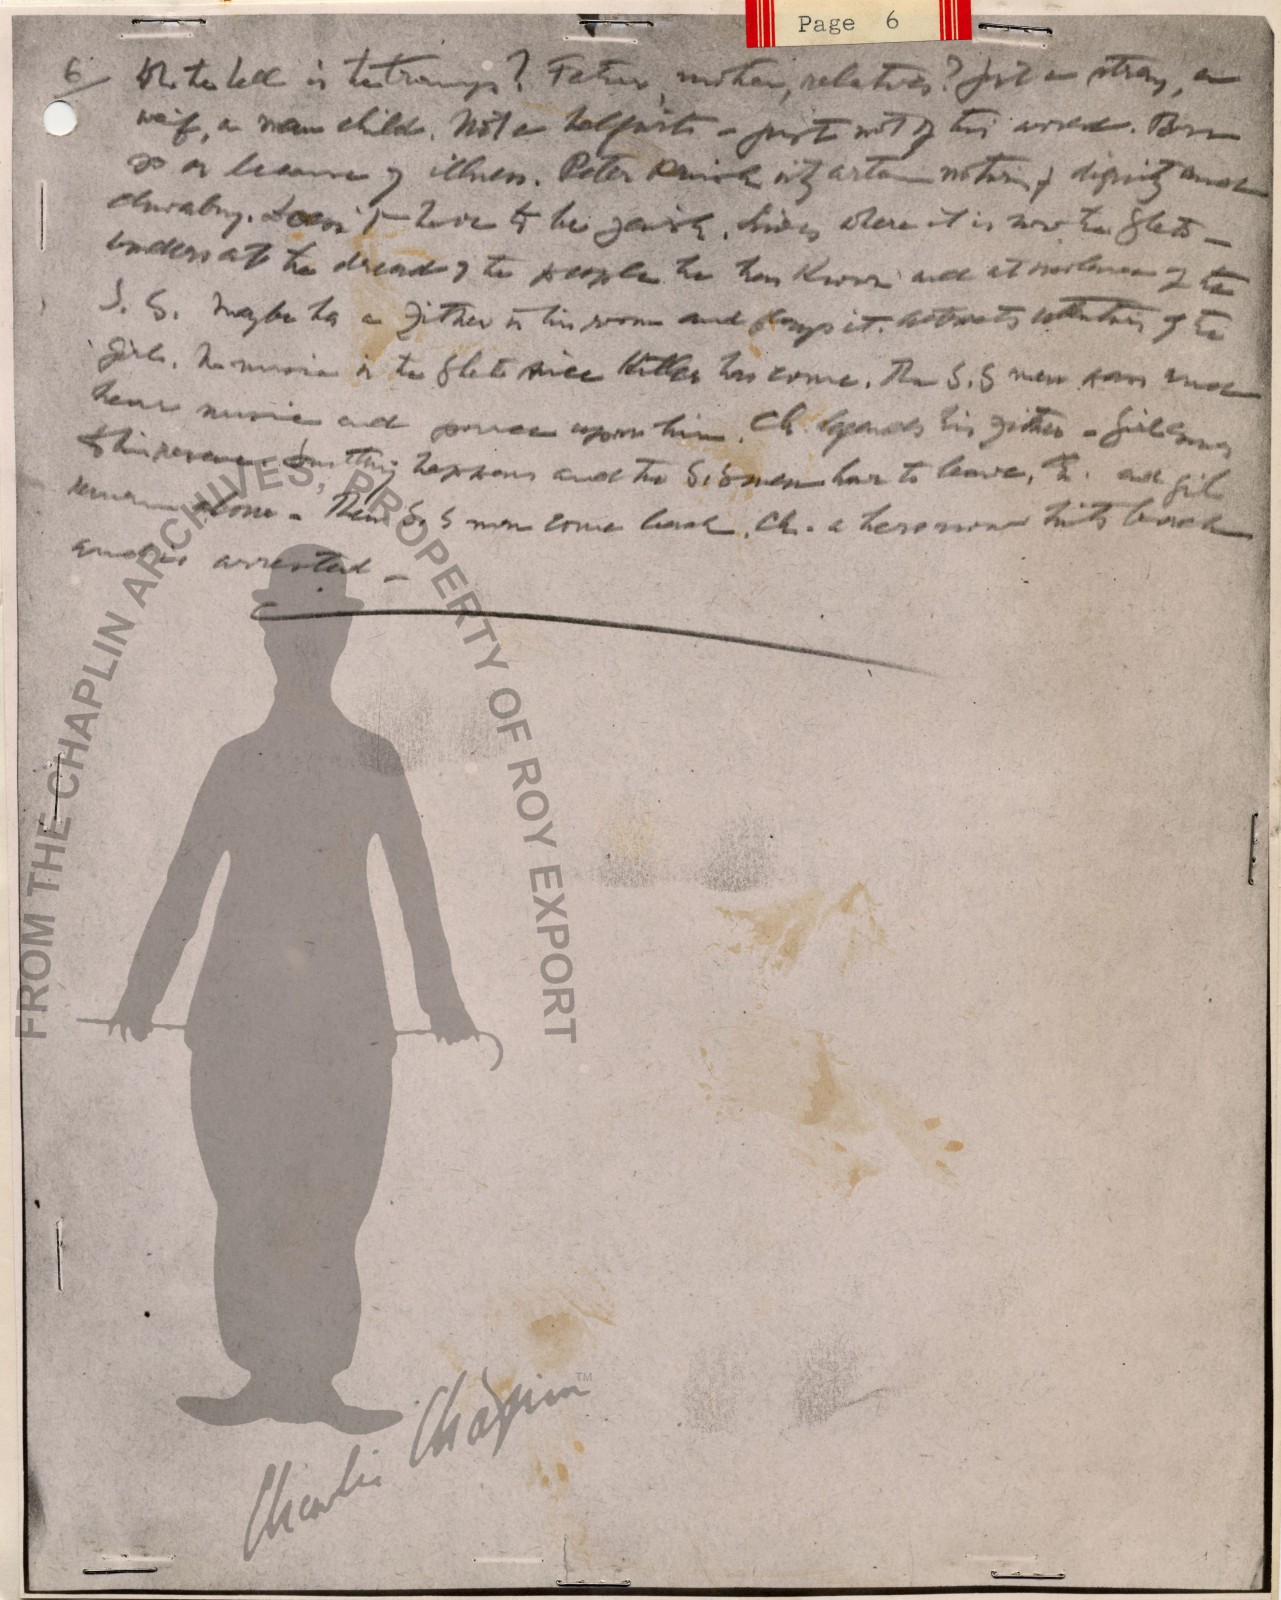 Page 6
6/ Who the hell is the tramp? Father, mother, relatives? Just a stray, a
waif, a man child. Not a halfwit - just not of this world. Born
so or because of illness. Peter with certain notions of dignity and
chivalry. Doesn't have to be Jewish. Lives where it is now the Ghetto -
understands the dread of the people he has known and at violence of the
S.S. Maybe has a zither in his room and plays it. attracts attention of the
girl. No music in the Ghetto since Hitler has come. The S.S men pass and
hear music and pounce upon him. Ch. defends his zither - girl comes
to his rescue. Something happens and the S.S men have to leave, Ch. and girl
remain alone - Then S.S men come back. Ch. a hero now hits back
and is arrested -
FROM THE CHAPLIN ARCHIVES, PROPERTY OF ROY EXPORT
Charlie Chaplin ™